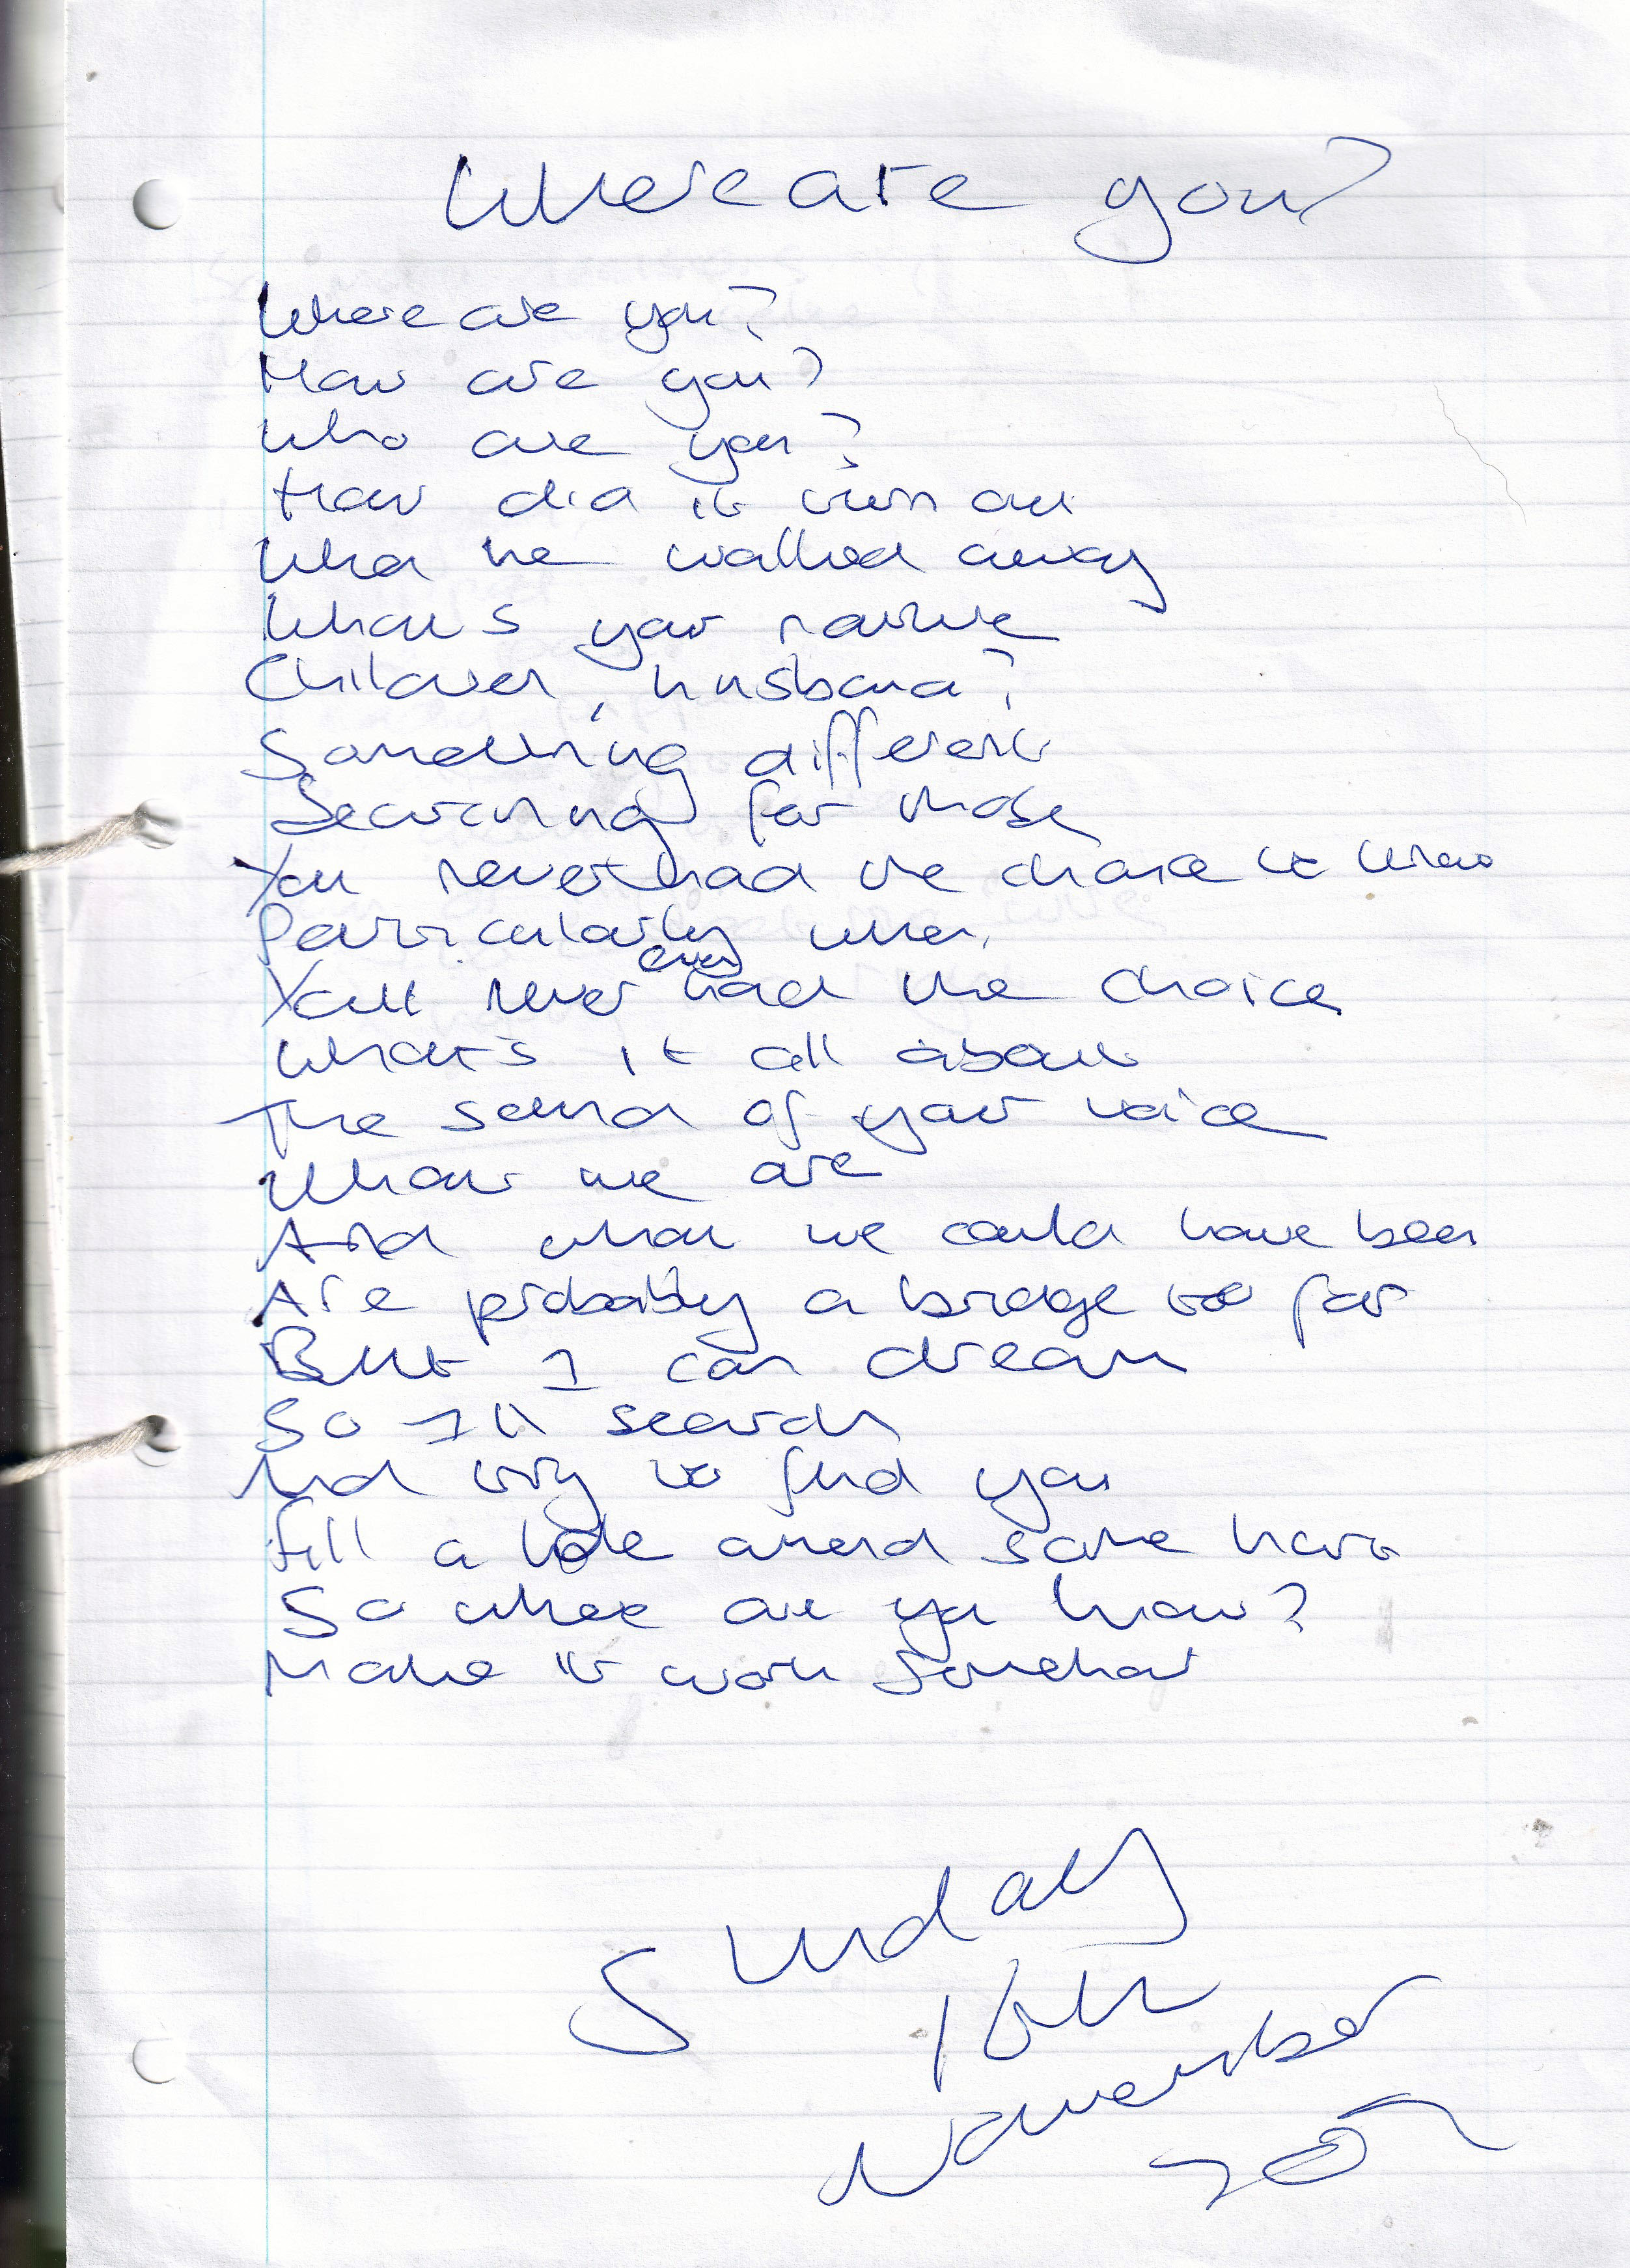 Where are you?
Where are you?
How are you?
Who are you?
How did it turn out
When he walked away
What's your name
Children, husband?
Something different
Searching for those
You never had the choice to know
Particularly when
You'll never ever had the choice
What's it all about
The sound of your voice
What we are
And what we could have been
Are probably a bridge too far
But I can dream
So I'll search
And try to find you
Fill a hole amend some hurt
So where are you know?
Make it work somehow
Sunday
16th
November